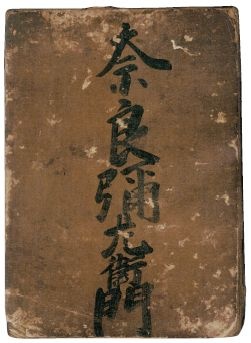 奈良彌左衛門